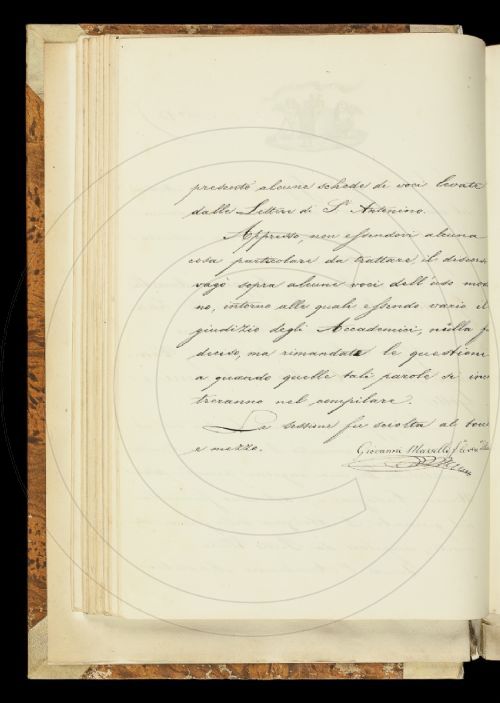 presentò alcune schede di voci levate
dalle Lettere di S. Antonino.
Appresso, non essendovi alcuna
cosa particolare da trattare, il discor
vagò sopra alcune voci dell'uso mod
no, intorno alle quali essendo vario il
giudizio degli Accademici, nulla f
deciso, ma rimandate le questioni
a quando quelle tali parole si inco
treranno nel compilare.
La sessione fu sciolta al tocco
e mezzo.
Giovanni